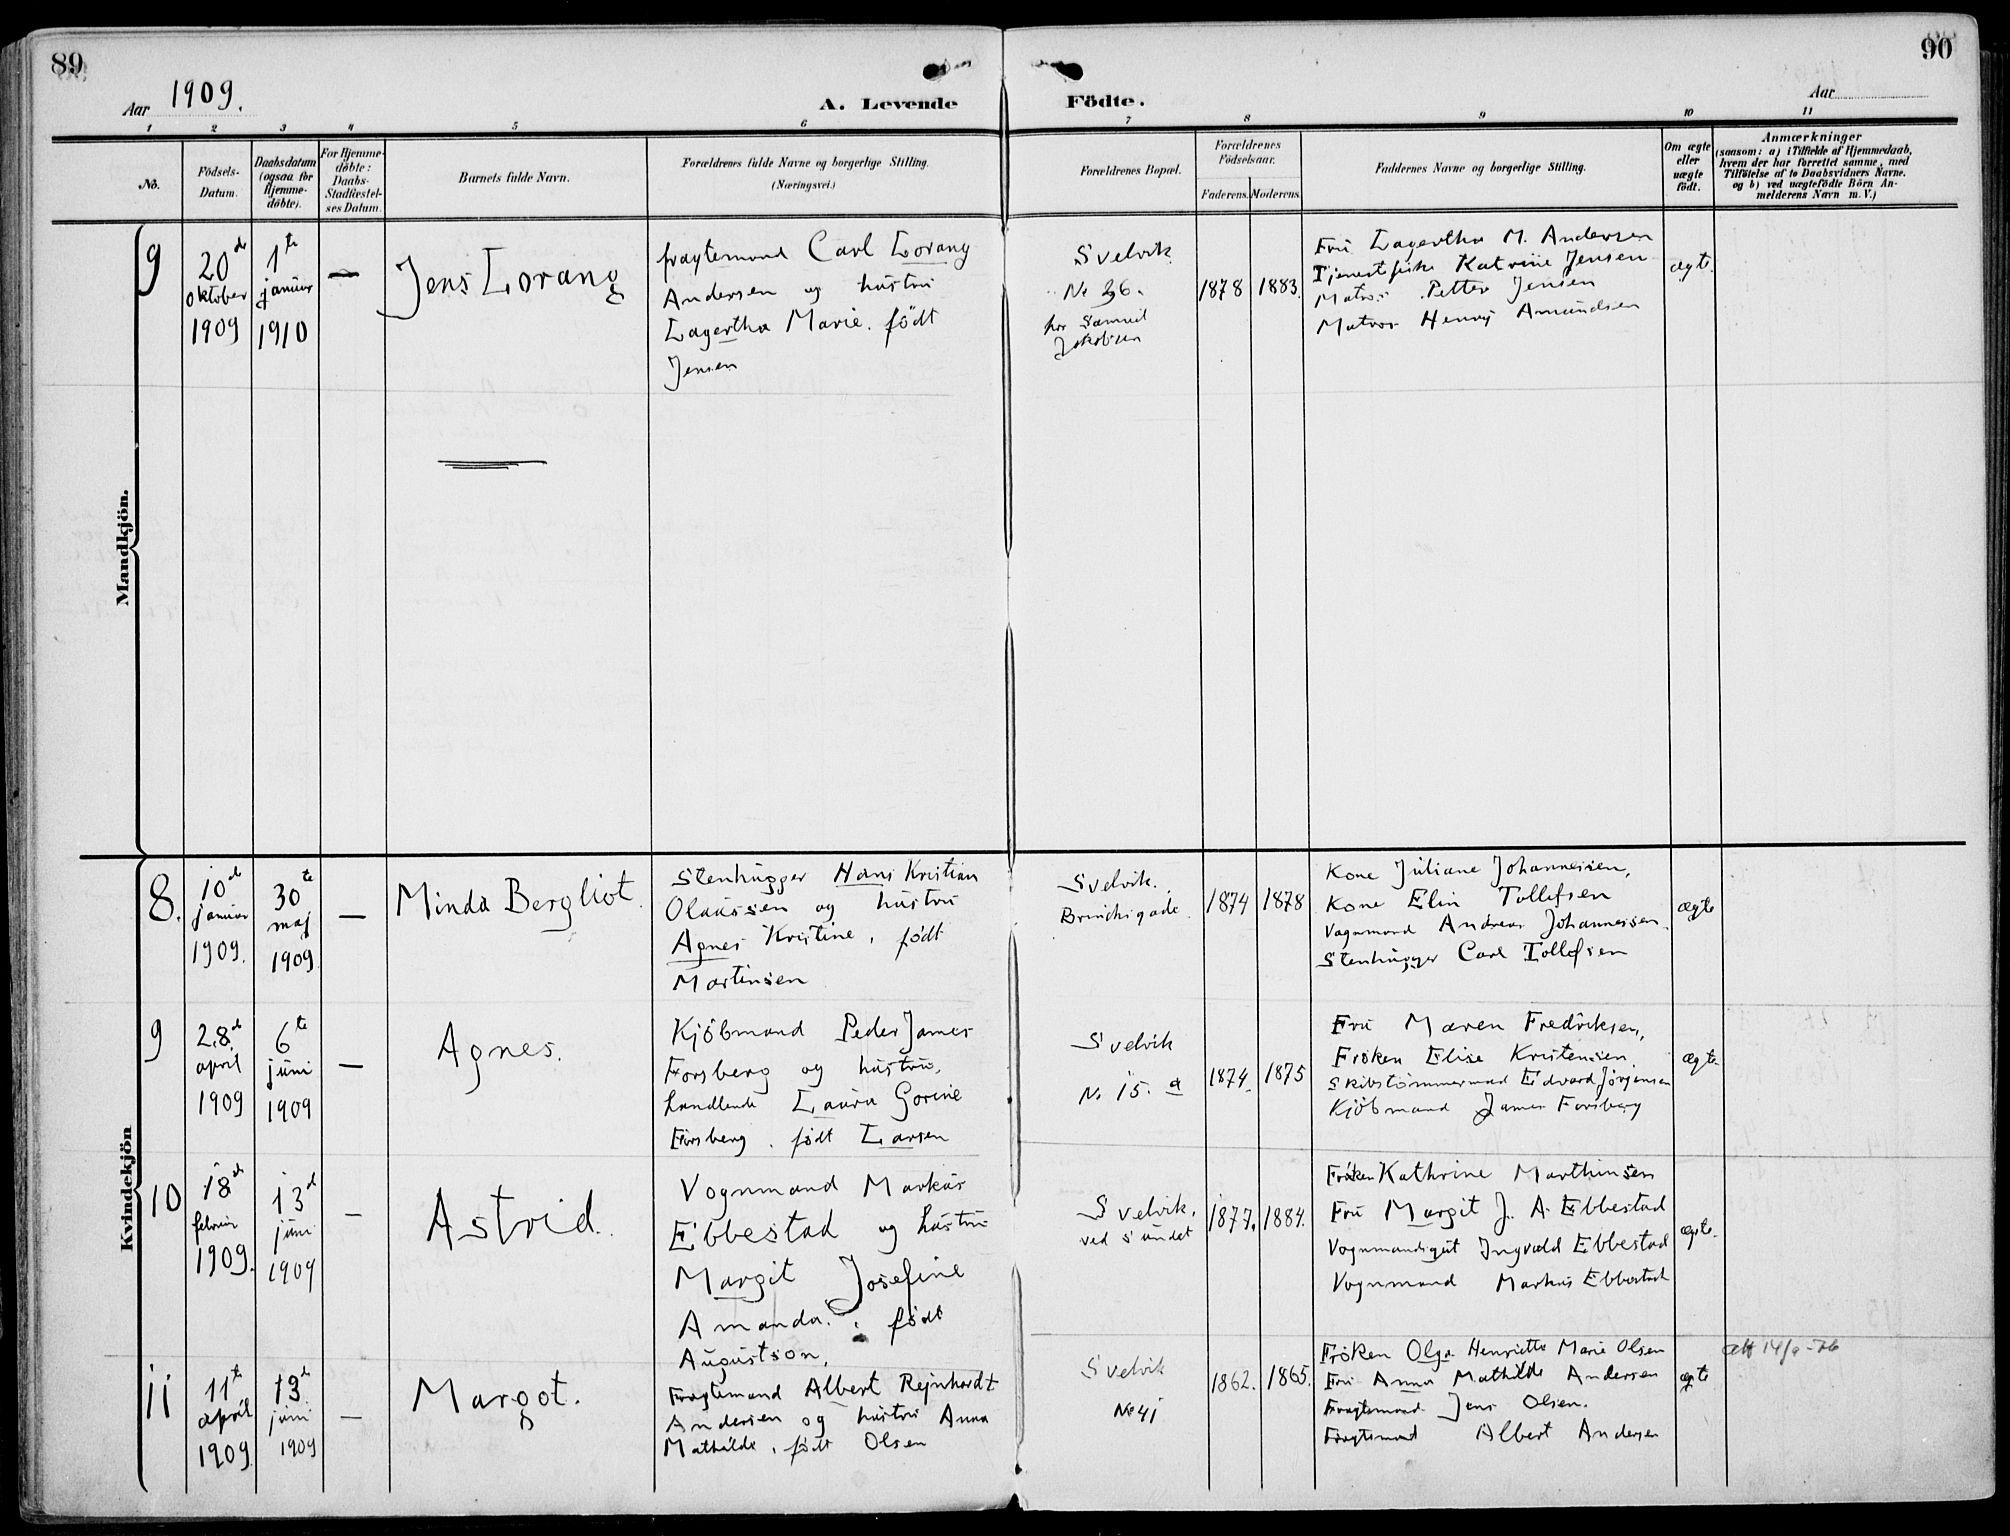 89
90
Aar 1909.
A. Levende Födte.
Aar
1 2 3 4 5 6 7 8 9 10 11
No.
Födsels-Datum.
Daabsdatum (ogsaa for Hjemme-döbte).
For Hjemme-döbte: Daabs-Stadfæstel-ses Datum.
Barnets fulde Navn.
Forældrenes fulde Navne og borgerlige Stilling.
(Næringsvei.)
Forældrenes Bopæl.
Forældrenes Födselsaar.
Faderens. Moderens.
Faddernes Navne og borgerlige Stilling.
Om ægte eller uægte födt.
Anmærkninger
(saasom: a) i Tilfælde af Hjemmedaab,
hvem der har forrettet samme, med
Tilföielse af to Daabsvidners Navne.
og b) ved uægtefödte Börn An-
melderens Navn m. V.)
Mandkjön.
9
20de oktober 1909
1te januar 1910
—
Jens Lorang
fragtemand Carl Lorang
Andersen og hustru
Lagertha Marie. født
Jensen
Svelvik
No 36.
hos Samuel
Jakobsen
1878
1883.
Fru Lagertha M. Andersen
Tjenestpike Katrine Jensen
Matros Petter Jensen
Matros Henry Amundsen
ægte.
Kvindekjön
8.
10de januar 1909.
30te maj 1909
—
Minda Bergliot.
Stenhugger Hans Kristian
Olaussen og hustru
Agnes Kristine, født
Martinsen
Svelvik.
Brinchsgade.
1874
1878
Kone Juliane Johannessen,
Kone Elin Tollefsen
Vognmand Andreas Johannessen.
Stenhugger Carl Tollefsen
ægte
9
28de april 1909
6te juni 1909
—
Agnes.
Kjöbmand Peder James
Forsberg og hustru,
handlende Laura Gorine
Forsberg, født Larsen
Svelvik
No 15. a
1874.
1875
Fru Maren Fredriksen,
Frøken Elise Kristensen
Skibstømmermand Edvard Jörgensen
Kjöbmand James Forsberg
ægte.
10
18de februar 1909.
13de juni 1909
—
Astrid.
Vognmand Markus
Ebbestad og hustru
Margit Josefine
Amanda, født
Augustson,
Svelvik,
ved Sundet
1877.
1884.
Frøken Kathrine Marthinsen
Fru Margit J. A. Ebbestad
Vognmandsgut Ingvald Ebbestad
Vognmand Markus Ebbestad
ægte.
11
11te april 1909.
13de juni 1909
—
Margot.
Fragtemand Albert Rejnhardt
Andersen og hustru Anna
Mathilde, født Olsen
Svelvik
No 41
1862.
1865.
Frøken Olga Henriette Marie Olsen
Fru Anna Mathilde Andersen
Fragtemand Jens Olsen.
Fragtemand Albert Andersen
ægte